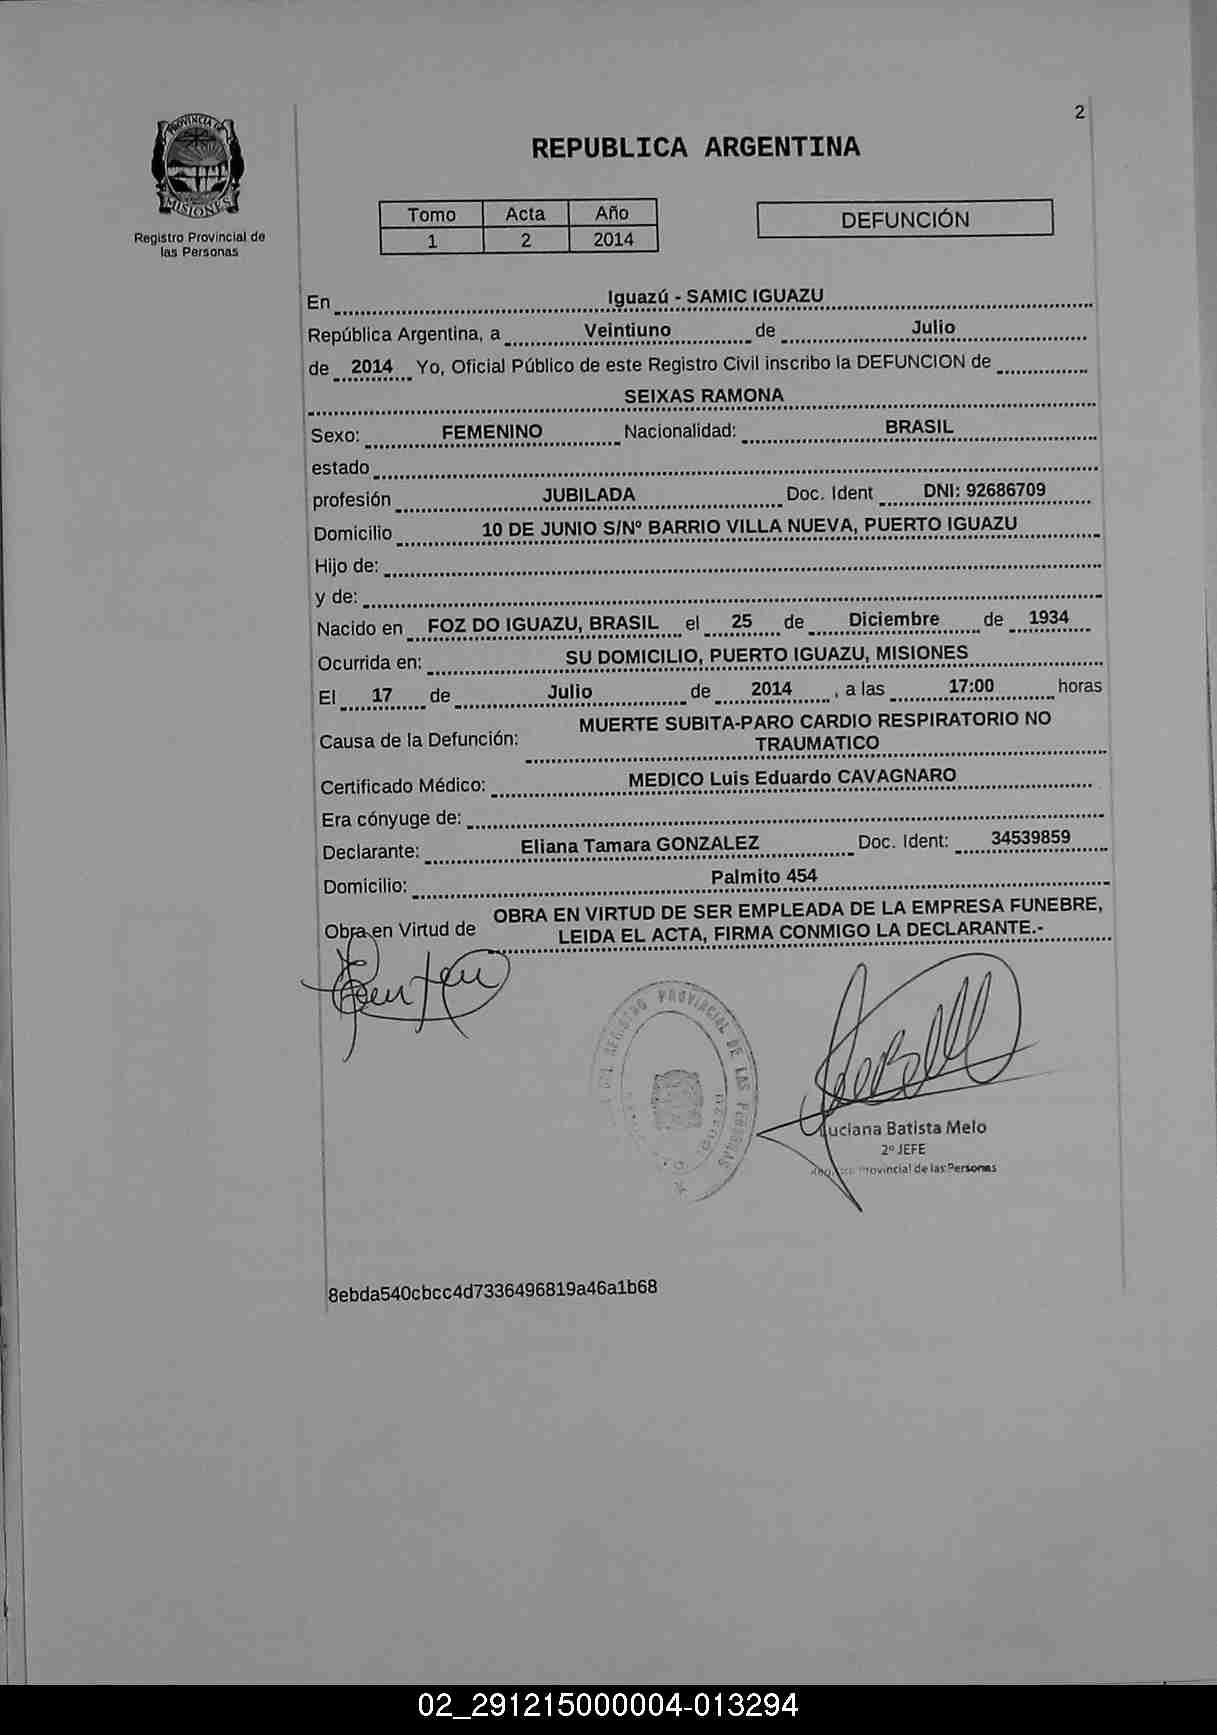 2
PROVINCIA DE
MISIONES
Registro Provincial de
las Personas
REPUBLICA ARGENTINA
Tomo Acta Año
1 2 2014
DEFUNCIÓN
En Iguazú - SAMIC IGUAZU
República Argentina, a Veintiuno de Julio
de 2014 Yo, Oficial Público de este Registro Civil inscribo la DEFUNCION de
SEIXAS RAMONA
Sexo: FEMENINO Nacionalidad: BRASIL
estado
profesión JUBILADA Doc. Ident DNI: 92686709
Domicilio 10 DE JUNIO S/Nº BARRIO VILLA NUEVA, PUERTO IGUAZU
Hijo de:
y de:
Nacido en FOZ DO IGUAZU, BRASIL el 25 de Diciembre de 1934
Ocurrida en: SU DOMICILIO, PUERTO IGUAZU, MISIONES
El 17 de Julio de 2014, a las 17:00 horas
Causa de la Defunción: MUERTE SUBITA-PARO CARDIO RESPIRATORIO NO
TRAUMATICO
Certificado Médico: MEDICO Luis Eduardo CAVAGNARO
Era cónyuge de:
Declarante: Eliana Tamara GONZALEZ Doc. Ident: 34539859
Domicilio: Palmito 454
Obra en Virtud de OBRA EN VIRTUD DE SER EMPLEADA DE LA EMPRESA FUNEBRE,
LEIDA EL ACTA, FIRMA CONMIGO LA DECLARANTE.-
DEL REGISTRO PROVINCIAL DE LAS PERSONAS
Luciana Batista Melo
2º JEFE
Registro Provincial de las Personas
8ebda540cbcc4d7336496819a46a1b68
02_291215000004-013294